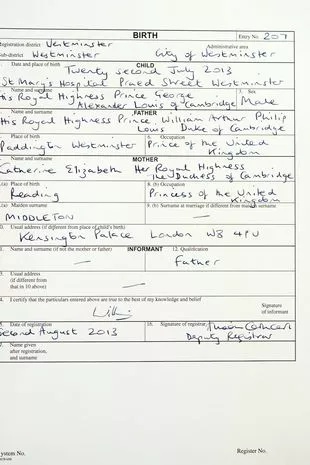 BIRTH
Entry No. 207
Registration district Westminster
Administrative area
Sub-district Westminster City of Westminster
1. Date and place of birth CHILD
Twenty second July 2013
St Mary's Hospital Praed Street Westminster
Name and surname 3. Sex
His Royal Highness Prince George
Alexander Louis of Cambridge Male
Name and surname FATHER
His Royal Highness Prince William Arthur Philip
Louis Duke of Cambridge
Place of birth 6. Occupation
Paddington Westminster Prince of the United
Kingdom
Name and surname MOTHER
Catherine Elizabeth Her Royal Highness
the Duchess of Cambridge
(a) Place of birth 8. (b) Occupation
Reading Princess of the United
Kingdom
(a) Maiden surname 9. (b) Surname at marriage if different from maiden surname
MIDDLETON —
Usual address (if different from place of child's birth)
Kensington Palace London W8 4PU
Name and surname (if not the mother or father) INFORMANT 12. Qualification
— Father
Usual address
(if different from
that in 10 above) —
I certify that the particulars entered above are true to the best of my knowledge and belief
Signature
of informant
Date of registration 16. Signature of registrar
Second August 2013 Deputy Registrar
Name given
after registration,
and surname
System No. Register No.